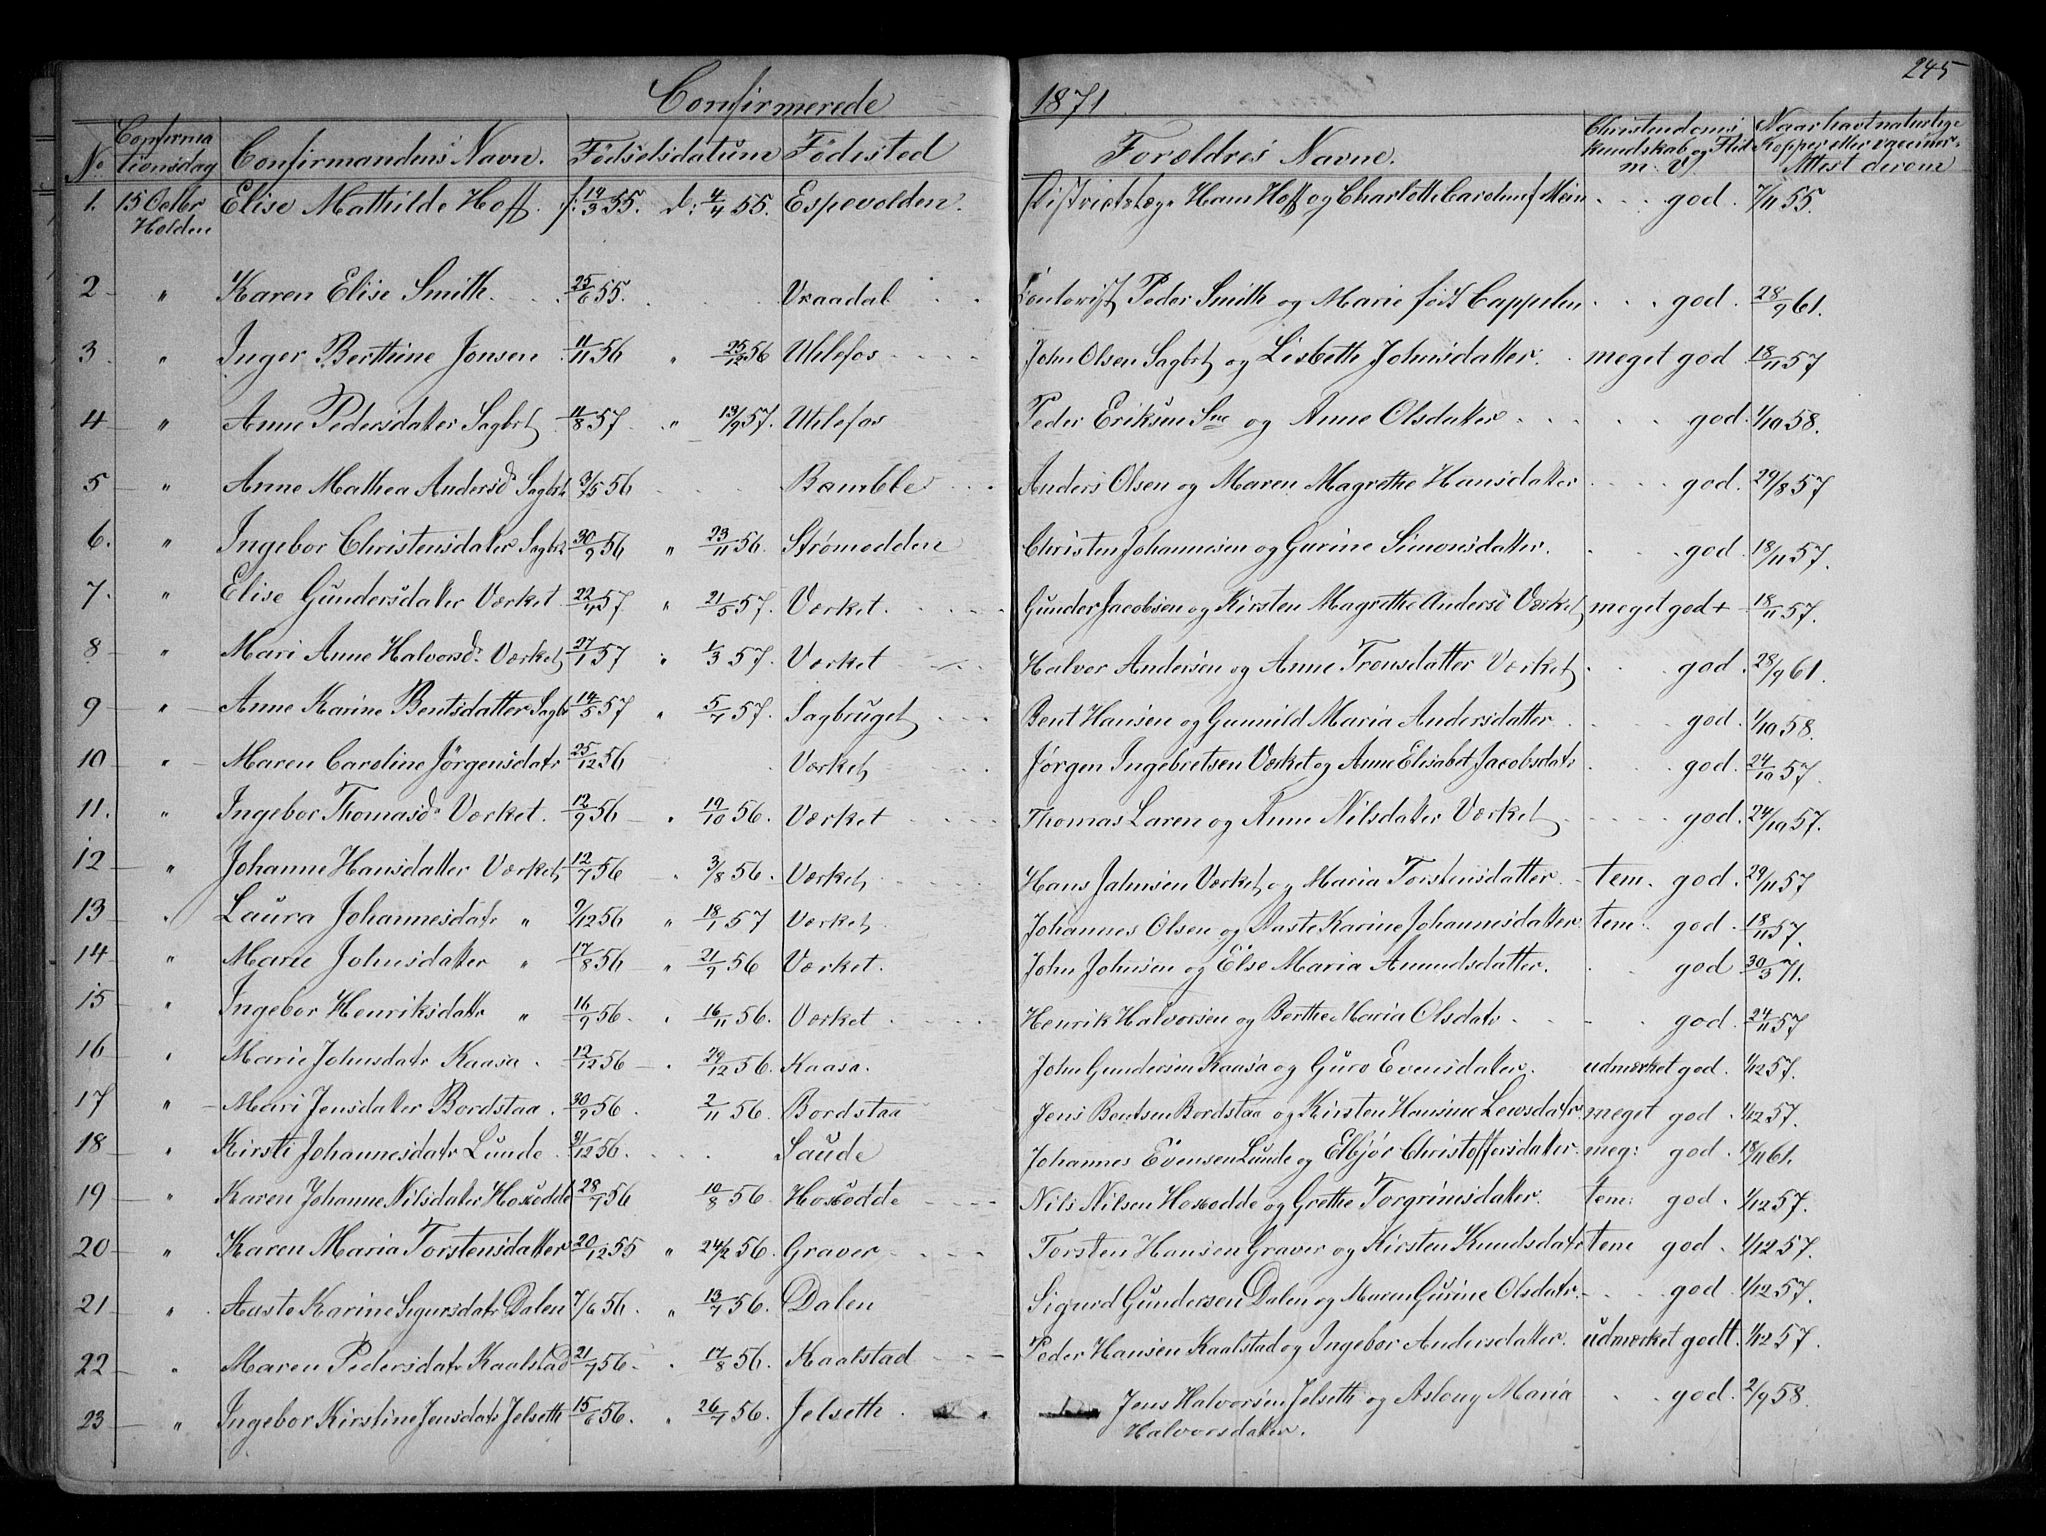 245
Confirmerede 1871.
No Confirmationsdag Confirmandens Navn. Fødselsdatum Fødested Forældres Navne. Christendoms Kundskab og Flid m. V. Naar havt naturlige Kopper eller vaccineret. Attest derom
1. 15 Octbr Holden Elise Mathilde Hoff. f: 14/3 55. d: 4/4 55. Espevolden. Distriktslæge Hans Hoff og Charlotte Caroline f. god. 7/11 55.
2 " Karen Elise Smith. 25/6 55. Vraadal Peder Smith og Marie født Cappelen god. 28/9 61.
3. " Inger Berthine Jonsen 11/11 56 " 25/12 56 Uhlefos John Olsen Sagbrt og Lisbeth Johnsdatter. meget god 18/11 57
4 " Anne Pedersdatter Sagbrt. 11/8 57 " 13/9 57. Uhlefos Peder Eriksen og Anne Olsdatter god. 1/10 58.
5 " Anne Mathea Andersd Sagbrt 3/5 56 Bamble Anders Olsen og Maren Magrethe Hansdatter god. 29/8 57
6. " Ingebor Christensdater Sagbrt 30/9 56 " 23/11 56. Strømodden Christen Johannesen og Gurine Simonsdatter. god. 18/11 57.
7. " Elise Gundersdater Værket 22/4 57 " 21/5 57. Værket. Gunder Jacobsen og Kirsten Magrethe Andersd Værket meget god + 18/11 57.
8 " Mari Anne Halvorsdr Værket 27/1 57 " 1/3 57. Værket Halvor Andersen og Anne Tronsdatter Værket god. 28/9 61.
9 " Anne Karine Bentsdatter Sagbr 14/5 57 " 5/7 57. Sagbruget Bent Hansen og Gunnild Maria Andersdatter god. 1/10 58.
10 " Maren Caroline Jørgensdatr 25/12 56 Værket Jørgen Ingebretsen Værket og Anne Elisabet Jacobsdatr god. 24/10 57.
11. " Ingebor Thomasd Værket. 12/9 56 " 19/10 56. Værket Thomas Laren og Anne Nilsdater Værket god. 24/10 57.
12 " Johanne Hansdatter Værket 12/7 56 " 3/8 56. Værket Hans Jahnsen Værket og Maria Torstensdatter. tem. god. 29/11 57
13 " Laura Johannesdatr " 9/12 56 " 18/1 57 Værket Johannes Olsen og Aaste Karine Johannesdatter tem: god. 18/11 57.
14 " Marie Johnsdatter " 17/8 56 " 21/9 56 Værket. John Johnsen og Else Maria Amundsdatter. god 30/3 71.
15 " Ingebor Henriksdatr " 16/9 56. " 16/11 56. Værket Henrik Halvorsen og Berthe Maria Olsdatr. god. 24/11 57
16 " Marie Johnsdatr Kaasa. 12/12 56 " 29/12 56. Kaasa. John Gundersen Kaasa og Guro Evensdater. udmærket god. 1/12 57.
17 " Mari Jensdater Bordstaa. 30/9 56. 2/11 56. Bordstaa Jens Bentsen Bordstaa og Kirsten Hansine Lewsdatr. meget god. 1/12 57.
18 " Kirsti Johannesdatr Lunde. 9/12 56. Saude Johannes Evensen Lunde og Elbjør Christoffersdater. meg: god. 18/11 61.
19 " Karen Johanne Nilsdater Hoxodde 28/7 56 10/8 56. Hoxodde Nils Nilsen Hoxodde og Grethe Torgrimsdatter. tem: god. 1/12 57.
20 " Karen Maria Torstensdatter 20/12 55 " 24/2 56. Graver Torsten Hansen Graver og Kirsten Knudsdatr tem god. 1/12 57.
21 " Aaste Karine Sigursdatr Dalen 7/6 56. " 13/7 56. Dalen Sigurd Gundersen Dalen og Maren Gurine Olsdatr. god. 1/12 57.
22 " Maren Pedersdatr Kaalstad 21/7 56. " 17/8 56. Kaalstad Peder Hansen Kaalstad og Ingebor Andersdatter. udmærket godt. 1/12 57.
23 " Ingebor Kirstine Jensdatr Jelseth 15/6 56. " 26/7 56. Jelseth. Jens Halvorsen Jelseth og Aslaug Maria god. 2/9 58.
Halvorsdater.